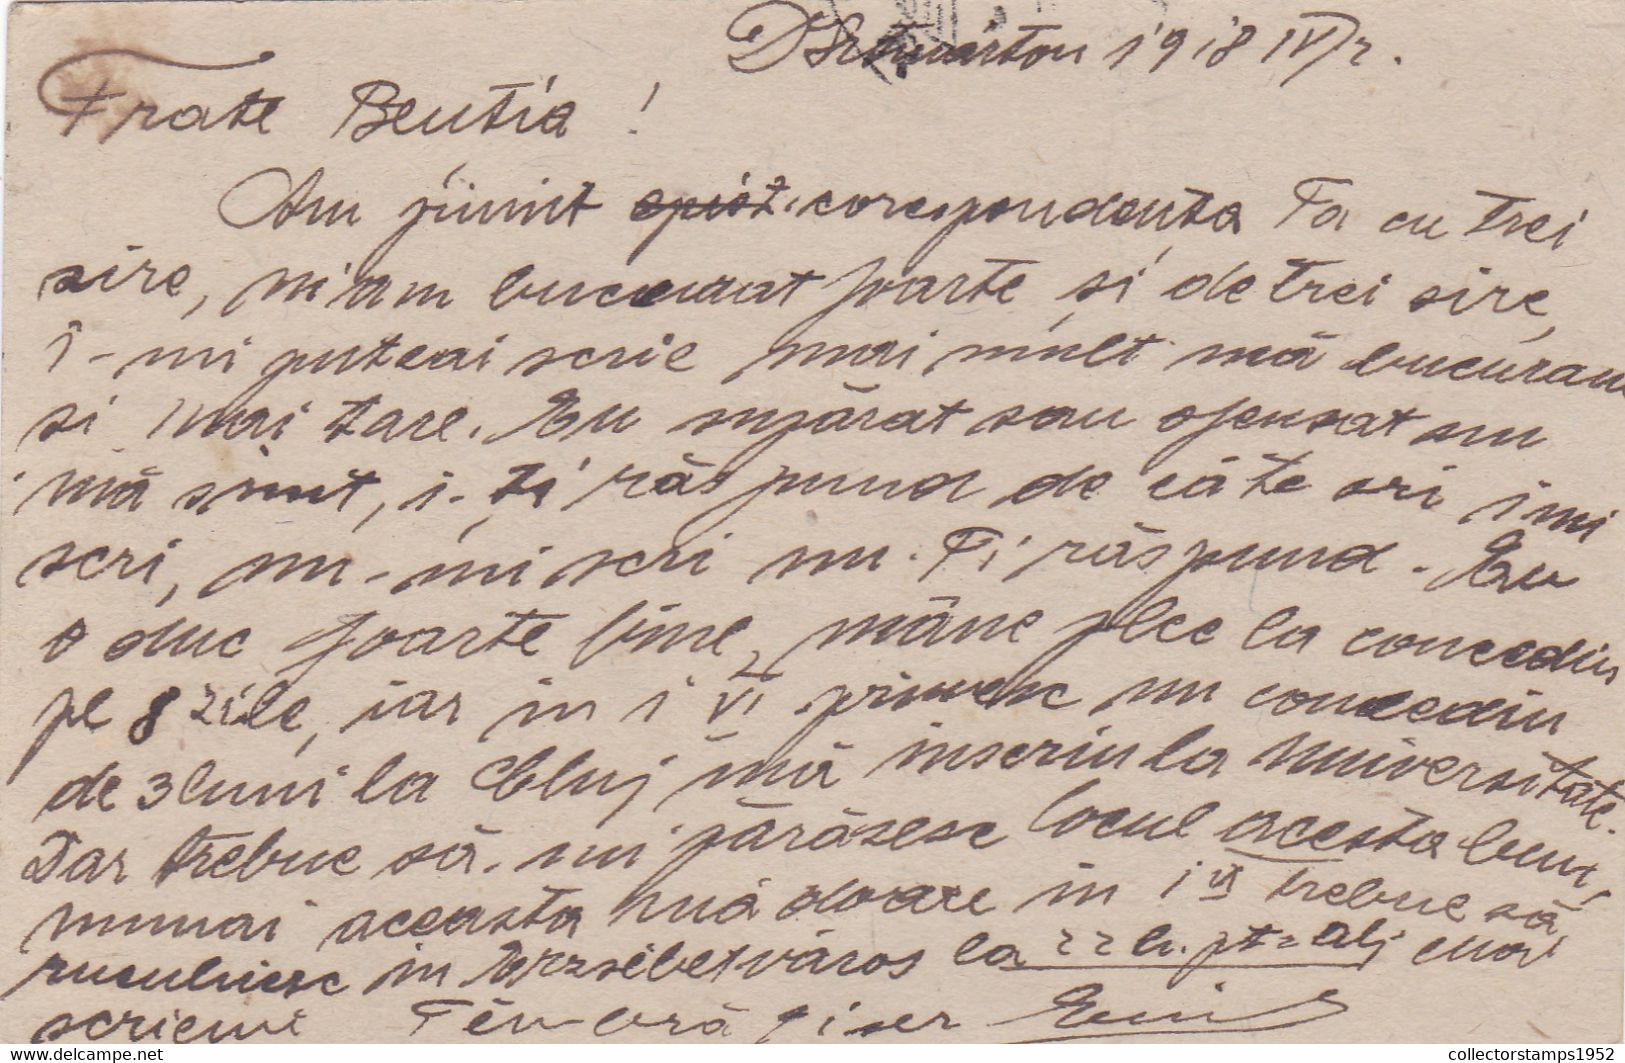 DSztmárton 1918 IV/2.
Frate Bentia!
Am primit corespondenta Ta cu trei
sire, m'am bucurat foarte și de trei sire,
î-mi puteai scrie mai mult mă bucuram
si mai tare. Eu supărat sau ofensat nu
mă simt, i-ți răspund de câte ori imi
scri, nu-mi scri nu-Ti răspund. Eu
o duc foarte bine, mâne plec la concediu
pe 8 zile, iar in 1 VI primesc un concediu
de 3 luni la Cluj mă inscriu la Universitate.
Dar trebue să-mi părăsesc locul acesta bun,
numai aceasta mă doare in 1 VI trebue să
ruculuesc in Erzsébetváros la 22 h. pt. alj mai
scriemi Tĕu-ără
collectorstamps1952